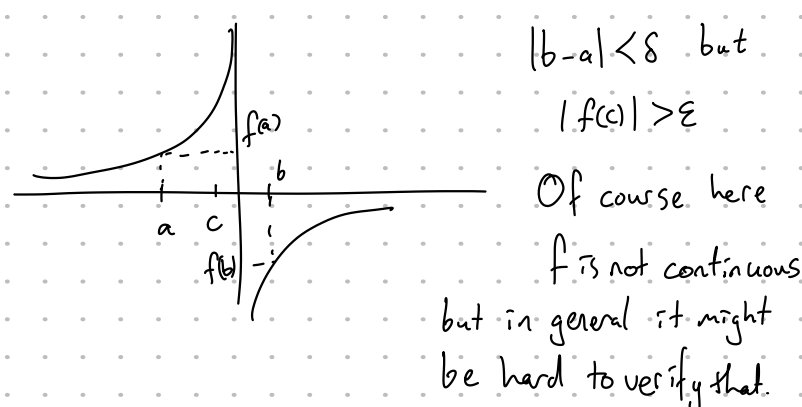 |b-a| < δ but
|f(c)| > ε
f(a)
b
a c
f(b)
Of course here
f is not continuous
but in general it might
be hard to verify that.